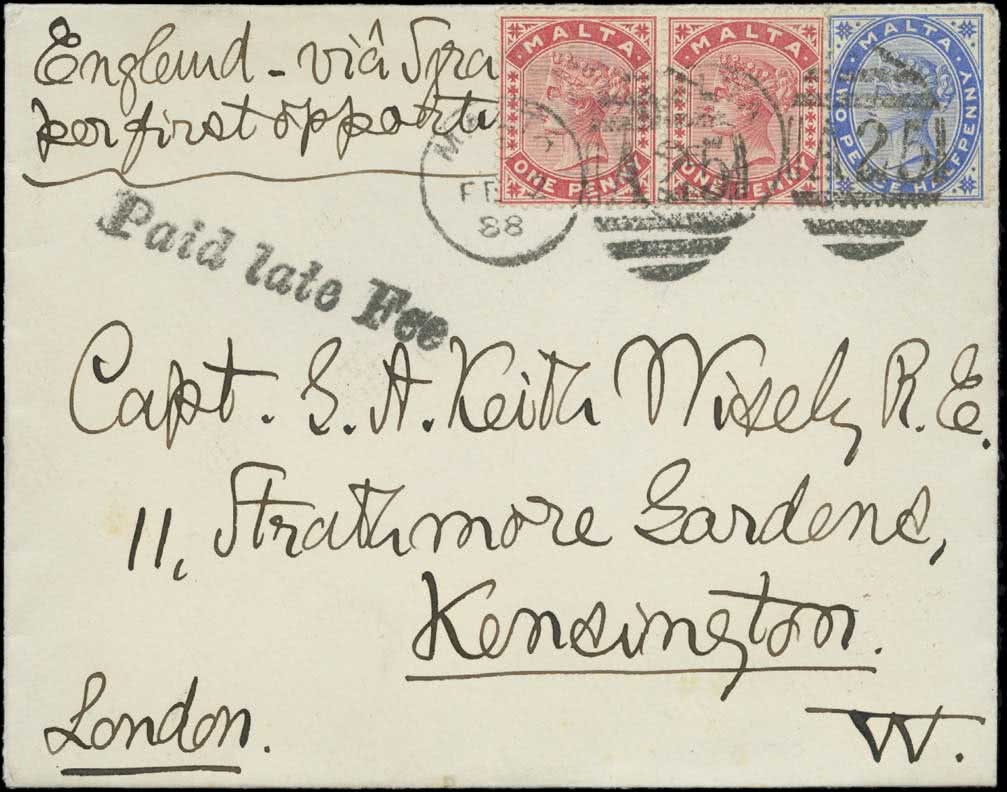 England - viâ Syra
per first opportu
MALTA
MALTA
MALTA
ONE PENNY
ONE PENNY
TWO PENCE HALFPENNY
A 25
A 25
MALTA
FE
88
Paid late Fee
Capt. G. A. Keith Wisely R.E.
11, Strathmore Gardens,
Kensington.
London.
W.